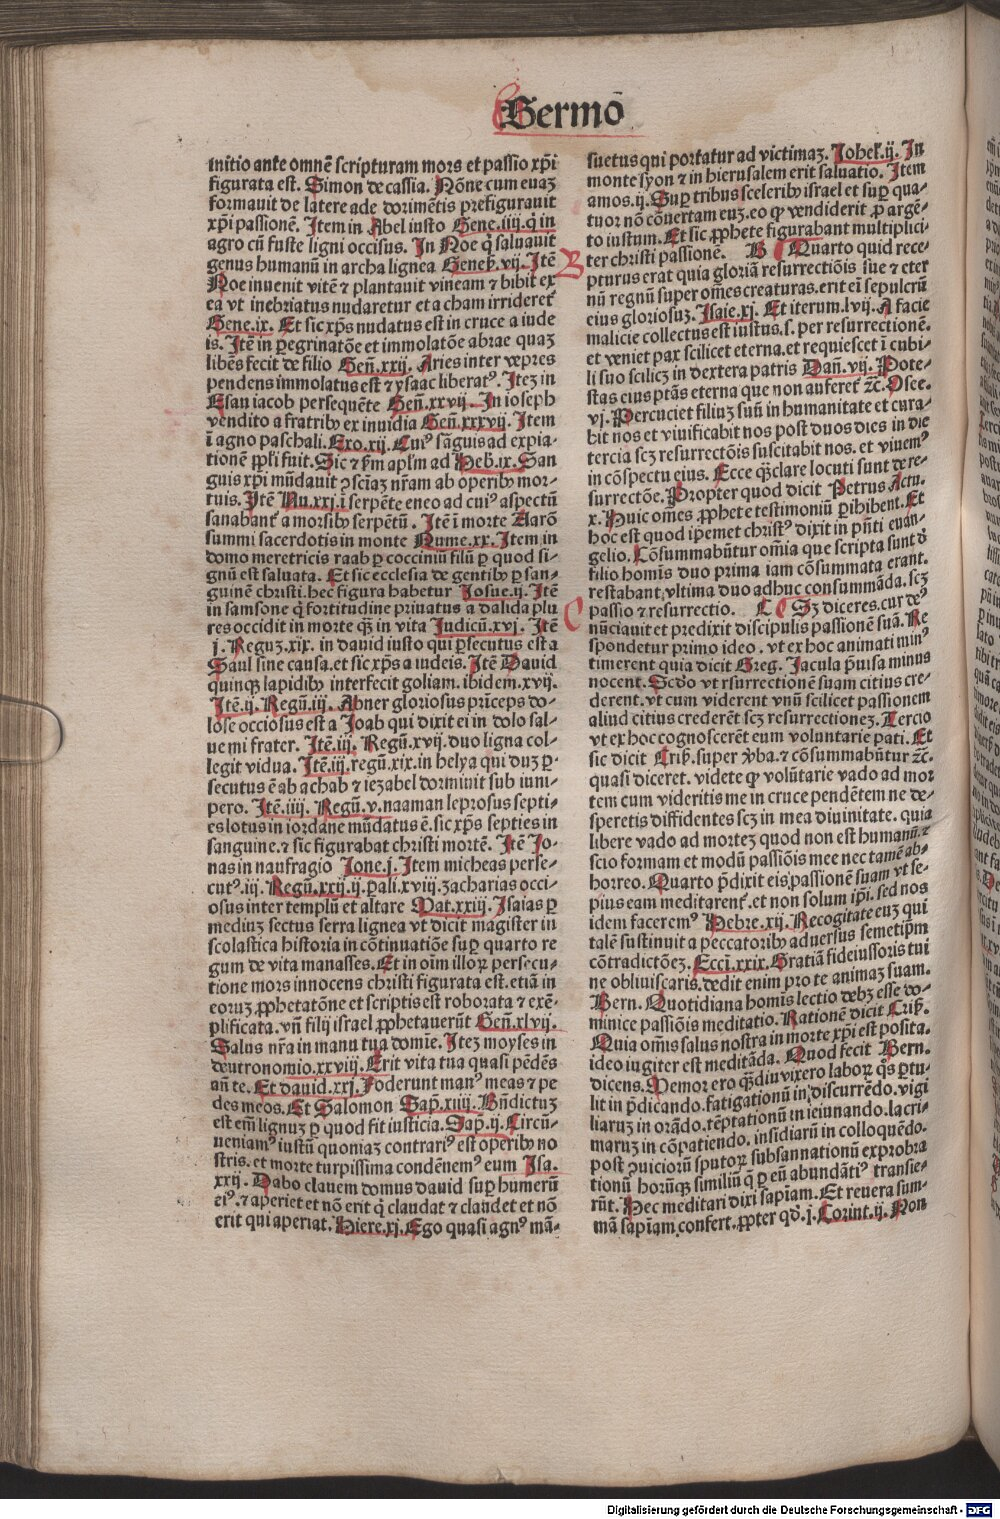 Sermō
initio ante omnē scripturam mors et passio xp̄i
figurata est. Simon de cassia. Nōne cum euaʒ
formauit de latere ade dormiētis prefigurauit
xp̄i passionē. Item in Abel iusto Gene.iiij. q̄ in
agro cū fuste ligni occisus. In Noe q̄ saluauit
genus humanū in archa lignea Geneẜ. vij. Itē
Noe inuenit vitē ⁊ plantauit vineam ⁊ bibit ex
ea vt inebriatus nudaretur et a cham irrideret̉
Gene.ix. Et sic xp̄s nudatus est in cruce a iude
is. Itē in ꝑegrinatōe et immolatōe abrae quaʒ
libēs fecit de filio Geñ.xxij. Aries inter vepres
pendens immolatus est ⁊ ysaac liberatꝰ. Iteʒ in
Esau iacob persequēte Geñ.xxvij. In ioseph
vendito a fratribꝰ ex inuidia Geñ.xxxvij. Item
ī agno paschali. Exo.xij. Cuiꝰ sāguis ad expia-
tionē ꝓpli fuit. Sic ⁊ ẜm apl̄m ad Heb̄.ix. San
guis xp̄i mūdauit ꝯsciaʒ nr̄am ab operibꝰ mor-
tuis. Itē Nu.xxj. ī serpēte eneo ad cuiꝰ aspectū
sanabant̉ a morsibꝰ serpētū. Itē ī morte Aarō
summi sacerdotis in monte Nume.xx. Item in
domo meretricis raab ꝑ cocciniū filū ꝑ quod si-
gnū est saluata. Et sic ecclesia de gentibꝰ ꝑ san-
guinē christi. hec figura habetur Iosue.ij. Itē
in samsone q̄ fortitudine priuatus a dalida plu
res occidit in morte q̄ʒ in vita Iudicū.xvj. Itē
j. Reguʒ.xix. in dauid iusto qui ꝑsecutus est a
Saul sine causa. et sic xp̄s a iudeis. Itē Dauid
quinqʒ lapidibꝰ interfecit goliam. ibidem.xvij.
Itē.ij. Regū.iij. Abner gloriosus prīceps do-
lose occiosus est a Joab qui dixit ei in dolo sal-
ue mi frater. Itē.iij. Regū.xvij. duo ligna col-
legit vidua. Itē.iij. regū.xix. in helya qui duʒ ꝑ-
secutus ē ab achab ⁊ iezabel dormiuit sub iuni-
pero. Itē.iiij. Regū.v. naaman leprosus septi-
es lotus in iordane mūdatus ē. sic xp̄s septies in
sanguine. ⁊ sic figurabat christi mortē. Itē Jo-
nas in naufragio Jone.j. Item micheas perse-
cutꝰ. iij. Regū.xxij. ij. ꝑali.xviij. zacharias occi-
osus inter templū et altare Mat.xxiij. Isaias ꝑ
mediuʒ sectus serra lignea vt dicit magister in
scolastica historia in cōtinuatiōe suꝑ quarto re
gum de vita manasses. Et in oīm illoꝝ persecu-
tione mors innocens christi figurata est. etiā in
eoruʒ ꝓphetatōne et scriptis est roborata ⁊ exē-
plificata. vñ filij israel ꝓphetauerūt Geñ.xlvij.
Salus nr̄a in manu tua domīe. Iteʒ moyses in
deutronomio.xxviij. Erit vita tua quasi pēdēs
añ te. Et dauid.xxj. Foderunt manꝰ meas ⁊ pe
des meos. Et Salomon Sap̄.xiiij. Bn̄dictuʒ
est em̄ lignuʒ ꝑ quod fit iusticia. Sap̄.ij. Circū-
ueniamꝰ iustū quoniaʒ contrariꝰ est operibꝰ no
stris. et morte turpissima condēnemꝰ eum Isa.
xxij. Dabo clauem domus dauid suꝑ humerū
eiꝰ. ⁊ aperiet et nō erit q̄ claudat ⁊ claudet et nō
erit qui aperiat. Hiere.xj. Ego quasi agnꝰ mā-
suetus qui portatur ad victimaʒ. Johel̉.ij. In
monte syon ⁊ in hierusalem erit saluatio. Item
amos.ij. Suꝑ tribus sceleribꝰ israel et suꝑ qua-
tuor nō cōuertam euʒ. eo ꝙ vendiderit ꝓ argē-
to iustum. Et sic ꝓphete figurabant multiplici-
ter christi passionē. B Quarto quid rece-
B
pturus erat quia gloriā resurrectiōis sue ⁊ eter
nū regnū super om̄es creaturas. erit eī sepulcrū
eius gloriosuʒ. Isaie.xj. Et iterum.lvij. A facie
malicie collectus est iustus. s. per resurrectionē.
et veniet pax scilicet eterna. et requiescet ī cubi-
li suo scilicʒ in dextera patris Dañ.vij. Pote-
stas eius ptās eterna que non auferet̉ ⁊c̄. Osee.
vj. Percuciet filiuʒ suū in humanitate et cura-
bit nos et viuificabit nos post duos dies in die
tercia scʒ resurrectōis suscitabit nos. et viuemꝰ
in cōspectu eius. Ecce q̄ʒ clare locuti sunt de re-
surrectōe. Propter quod dicit Petrus Actu.
x. Huic om̄es ꝓphete testimoniū ꝑhibent. Et
hoc est quod ip̄emet christꝰ dixit in pn̄ti euan-
gelio. Cōsummabūtur om̄ia que scripta sunt ð
filio homīs duo prima iam cōsummata erant.
restabant vltima duo adhuc consummāda. scʒ
passio ⁊ resurrectio. C Sʒ diceres. cur deꝰ
C
nūciauit et predixit discipulis passionē suā. Re
spondetur primo ideo. vt ex hoc animati minꝰ
timerent quia dicit Greg. Jacula p̄uisa minus
nocent. Scd̄o vt rsurrectionē suam citius cre-
derent. vt cum viderent vnū scilicet passionem
aliud citius crederēt scʒ resurrectioneʒ. Tercio
vt ex hoc cognoscerēt eum voluntarie pati. Et
sic dicit Criẜ. super ꝟba. ⁊ cōsummabūtur ⁊c̄.
quasi diceret. videte ꝙ volūtarie vado ad mor
tem cum videritis me in cruce pendētem ne de-
speretis diffidentes scʒ in mea diuinitate. quia
libere vado ad morteʒ quod non est humanū. ⁊
scio formam et modū passiōis mee nec tamē ab-
horreo. Quarto p̄dixit eis passionē suam vt se-
pius eam meditarent̉. et non solum ip̄i. sed nos
idem faceremꝰ Hebre.xij. Recogitate euʒ qui
talē sustinuit a peccatoribꝰ aduersus semetip̄m
cōtradictōeʒ. Ecci̇.xxix. Gratiā fideiussoris tui
ne obliuiscaris. dedit enim pro te animaʒ suam.
Bern. Quotidiana homīs lectio debʒ esse do-
minice passiōis meditatio. Rationē dicit Criẜ.
Quia om̄is salus nostra in morte xp̄i est posita.
ideo iugiter est meditāda. Quod fecit Bern.
dicens. Memor ero q̄ʒdiu vixero laboꝝ q̄s ꝑtu-
lit in p̄dicando. fatigationū in discurrēdo. vigi
liaruʒ in orādo. tēptationū in ieiunando. lacri-
maruʒ in cōpatiendo. insidiarū in colloquēdo.
post ꝯuiciorū sputoꝝ subsannationū exprobra
tionū horūqʒ similiū q̄ ꝑ eū abundātiꝰ transie-
rūt. Hec meditari dixi sapīam. Et reuera sum-
mā sapīam confert. ꝓpter qd̄. j. Corint.ij. Non
Digitalisierung gefördert durch die Deutsche Forschungsgemeinschaft - DFG